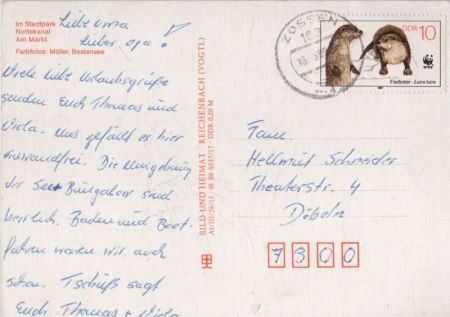 Im Stadtpark
Nottekanal
Am Markt
Farbfotos: Möller, Bestensee
Liebe Oma
Lieber Opa!
Viele liebe Urlaubsgrüße
senden Euch Thomas und
Viola. Uns gefällt es hier
einwandfrei. Die Umgebung
der Bungalow sind
herrlich. Baden und Boot-
fahren waren wir auch
schon. Tschüß sagt
Euch Thomas + Viola
BILD UND HEIMAT · REICHENBACH (VOGTL)
DDR 0,20 M
ZOSSEN
DDR 10
WWF
Fischotter · Lutra lutra
Fam.
Hellmut Schneider
Theaterstr. 4
Döbeln
7300